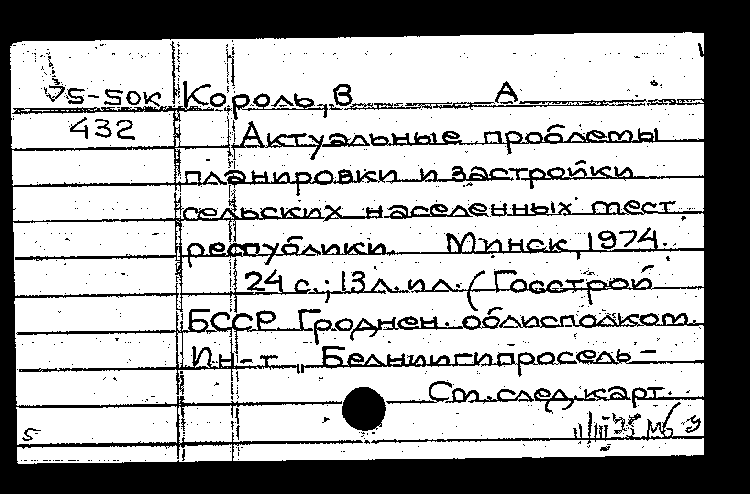 75-50к Король, В А
432 Актуальные проблемы
планировки и застройки
сельских населенных мест
республики. Минск, 1974.
24 с.; 13 л. ил. (Госстрой
БССР Гроднен. облисполком.
Ин-т „Белниигипросель-
См. след. карт.
5